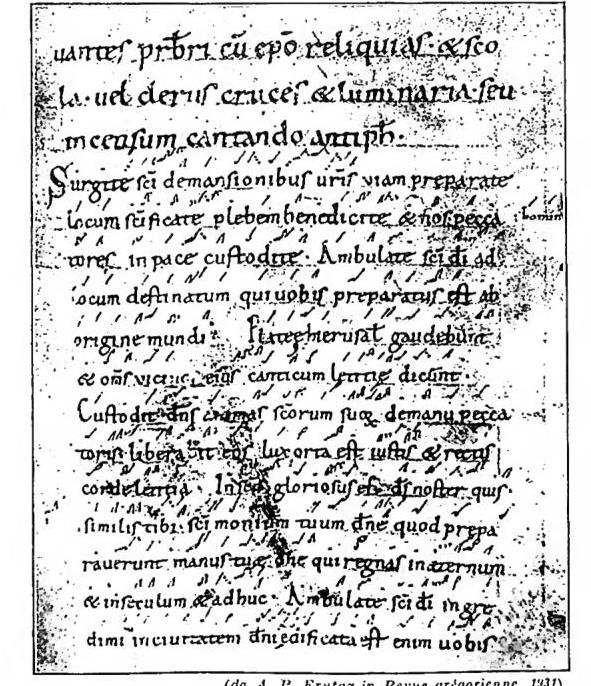 uantes prb̄ri cū ep̄o reliquias · & sco
la · uel clerus cruces & luminaria seu
incensum cantando antiph̄ ·
Surgite sc̄i demansionibus ur̄is viam preparate
locum sc̄ificate plebem benedicite & nos pecca homin
tores in pace custodite · Ambulate sc̄i dī ad
locum destinatum qui uobis preparatus est ab
origine mundi · Plateę hierusal̄ gaudebunt
& om̄s vici eius canticum letitię dicent ·
Custodit dn̄s animas sc̄orum suoꝝ demanu pecca
toris liberabit eos lux orta est iustis & rectis
corde letitia · gloriosus es ds̄ noster quis
similis tibi · sc̄i monium tuum dn̄e quod prepa
rauerunt manus tuę dn̄e qui regnas in aeternum
& inseculum & adhuc · Ambulate sc̄i dī ingre
dimi inciuitatem dn̄i edificata est enim uobis
(da A. P. Frutaz in Revue grégorienne, 1931)